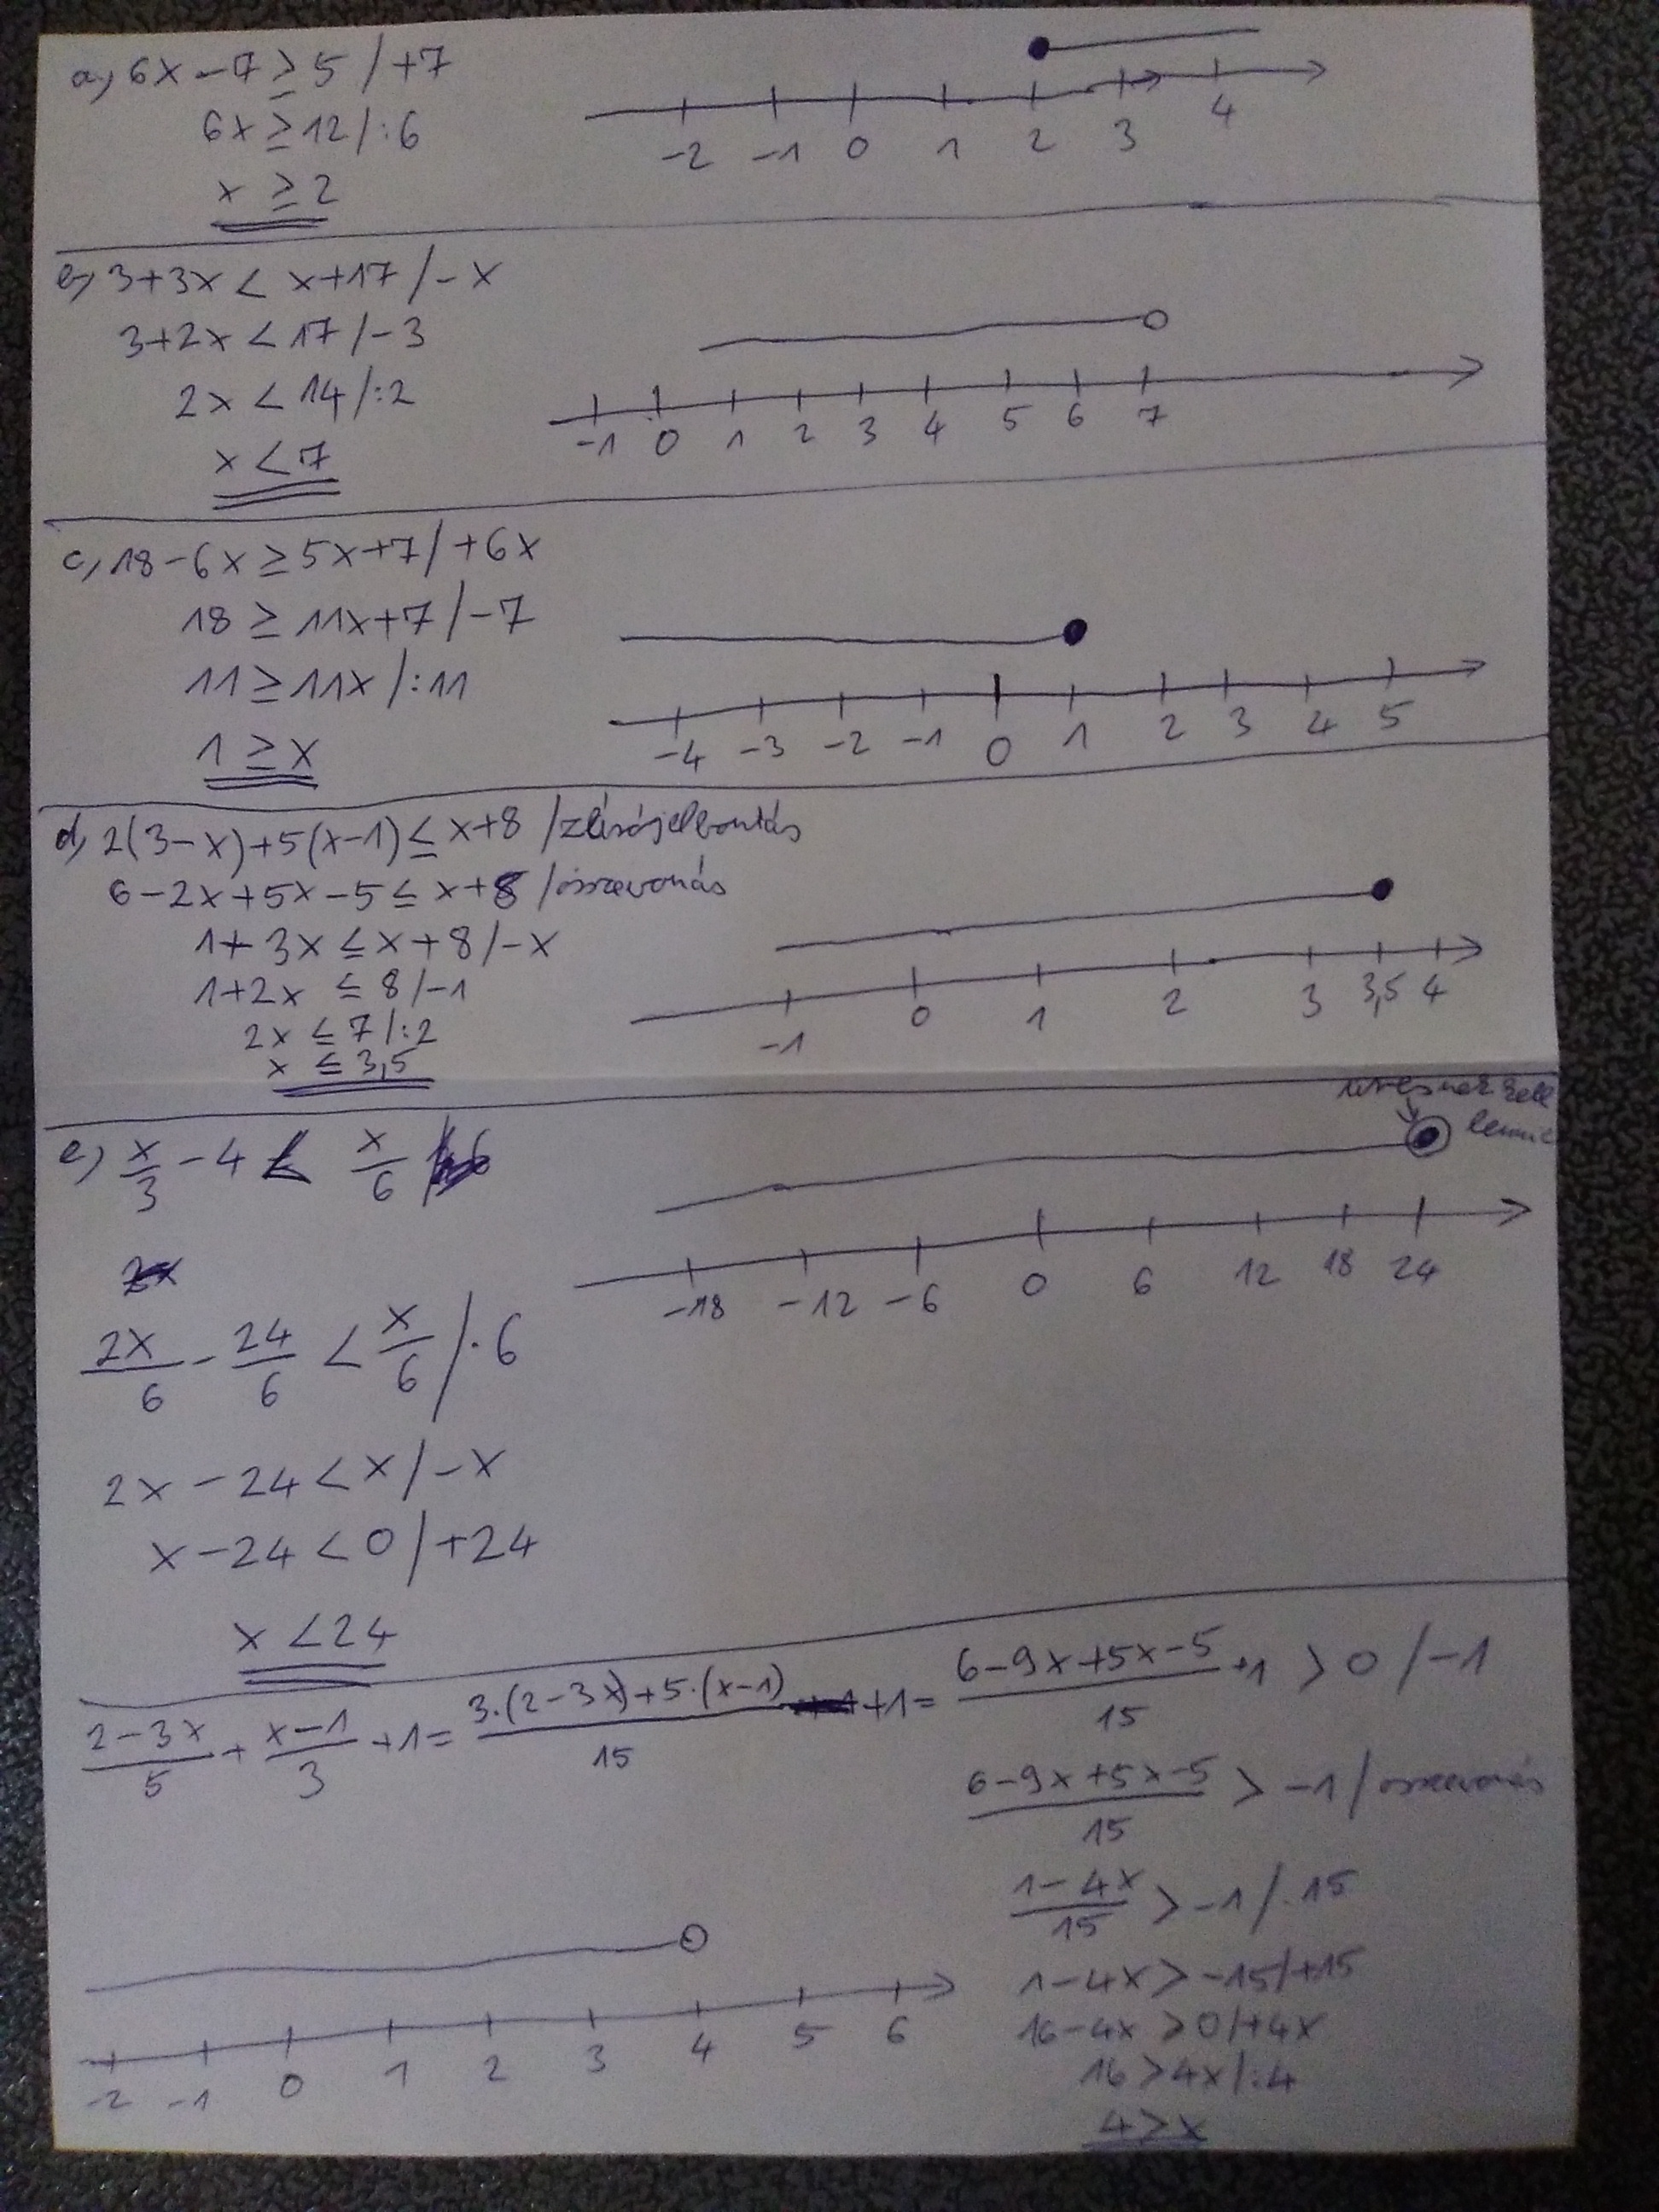 a, 6x - 7 ≥ 5 / +7
6x ≥ 12 / :6
x ≥ 2
-2 -1 0 1 2 3 4
b, 3+3x < x+17 / -x
3+2x < 17 / -3
2x < 14 / :2
x < 7
-1 0 1 2 3 4 5 6 7
c, 18-6x ≥ 5x+7 / +6x
18 ≥ 11x+7 / -7
11 ≥ 11x / :11
1 ≥ x
-4 -3 -2 -1 0 1 2 3 4 5
d, 2(3-x)+5(x-1) ≤ x+8 / zárójelbontás
6-2x+5x-5 ≤ x+8 / összevonás
1+3x ≤ x+8 / -x
1+2x ≤ 8 / -1
2x ≤ 7 / :2
x ≤ 3,5
-1 0 1 2 3 3,5 4
e, x/3 - 4 < x/6
üresnek kell
lennie
-18 -12 -6 0 6 12 18 24
2x/6 - 24/6 < x/6 / ·6
2x - 24 < x / -x
x - 24 < 0 / +24
x < 24
(2-3x)/5 + (x-1)/3 + 1 = (3·(2-3x)+5·(x-1))/15 + 1 = (6-9x+5x-5)/15 + 1 > 0 / -1
(6-9x+5x-5)/15 > -1 / összevonás
(1-4x)/15 > -1 / ·15
1-4x > -15 / +15
16-4x > 0 / +4x
16 > 4x / :4
4 > x
-2 -1 0 1 2 3 4 5 6